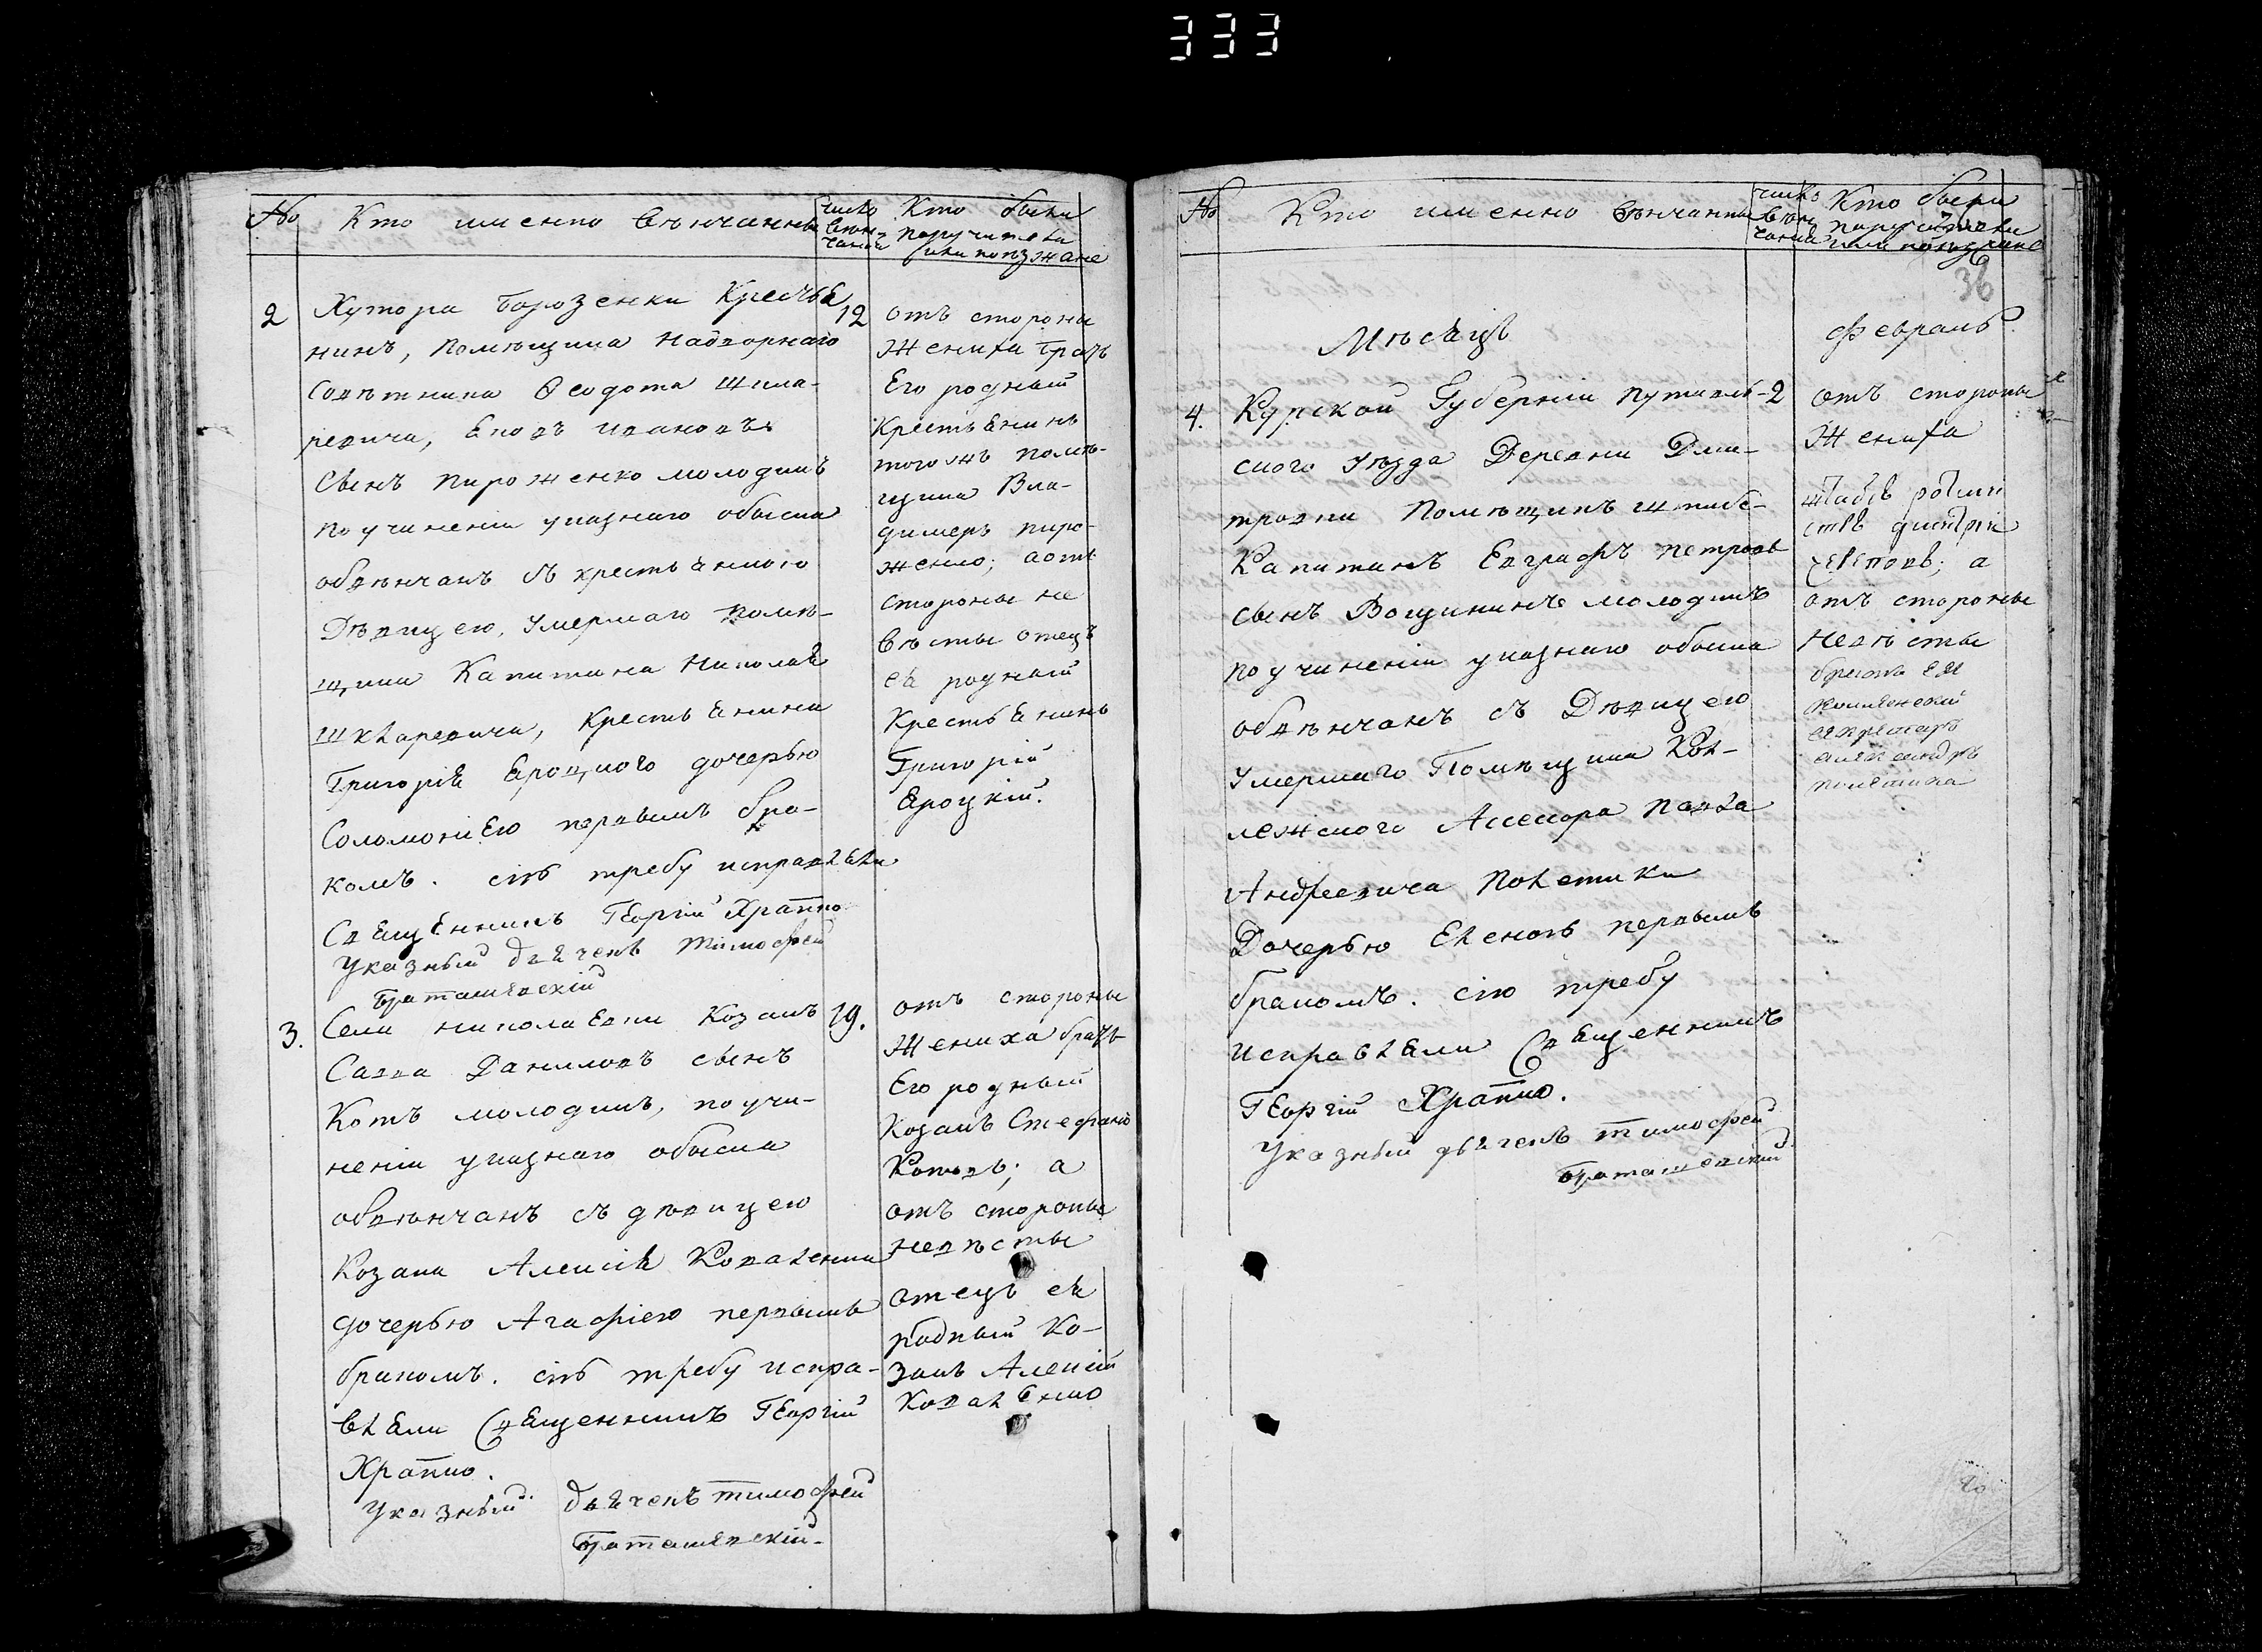 333
№ Кто именно вѣнчанны число вѣнчаній Кто были поручители или поѣзжане
2 Хутора Борозенки Крестья
нинъ, Помѣщика надворнаго
Совѣтника Ѳеодота Шкля-
ревича, Іаковъ Ивановъ
Сынъ Пироженко молодикъ
по учиненіи указнаго обыска
обвѣнчанъ съ крестьянкою
Дѣвицею, умершаго Помѣ-
щика Капитана Николая
Шкляревича, Крестьянина
Григорія Яроцкого дочерью
Соломоніею первымъ бра-
комъ. сію требу исправляли
Священникъ Георгій Храпко
Указный дьячекъ Тимофей
Браташевскій
12
отъ стороны
Жениха братъ
Его родный
Крестьянинъ
того жъ помѣ-
щика Вла-
димеръ Пиро-
женко; а отъ
стороны не
вѣсты отецъ
ея родный
Крестьянинъ
Григорій
Яроцкій.
3. Села Николаевки Козакъ
Савва Даниловъ сынъ
Котъ молодикъ, по учи-
неніи указнаго обыска
обвѣнчанъ съ дѣвицею
Козака Алексія Коваленка
дочерью Агафіею первымъ
бракомъ. сію требу испра-
вляли Священникъ Георгій
Храпко.
Указный дьячекъ Тимофей
Браташевскій
19.
отъ стороны
Жениха братъ
Его родный
Козакъ Стефанъ
Котъ; а
отъ стороны
невѣсты
отецъ ея
родный Ко-
закъ Алексій
Коваленко
№ Кто именно вѣнчанны число вѣнчаній Кто были поручители или поѣзжане
36
Мѣсяцъ Февраль
4. Курской Губерніи Путивль-
ского уѣзда Деревни Дми-
тровки Помѣщикъ штабс-
Капитанъ Евграфъ Петровъ
сынъ Вощининъ молодикъ
по учиненіи указнаго обыска
обвѣнчанъ съ Дѣвицею
умершаго Помѣщика Кол-
лежского Ассесора Павла
Андреевича Полетики
Дочерью Еленою первымъ
бракомъ. сію требу
исправляли Священникъ
Георгій Храпко.
Указный дьячекъ Тимофей
Браташевскій
2
отъ стороны
Жениха
штабсъ ротми
стръ Дмитрій
а
отъ стороны
невѣсты
братъ ея
секретарь
Александръ
Полетика